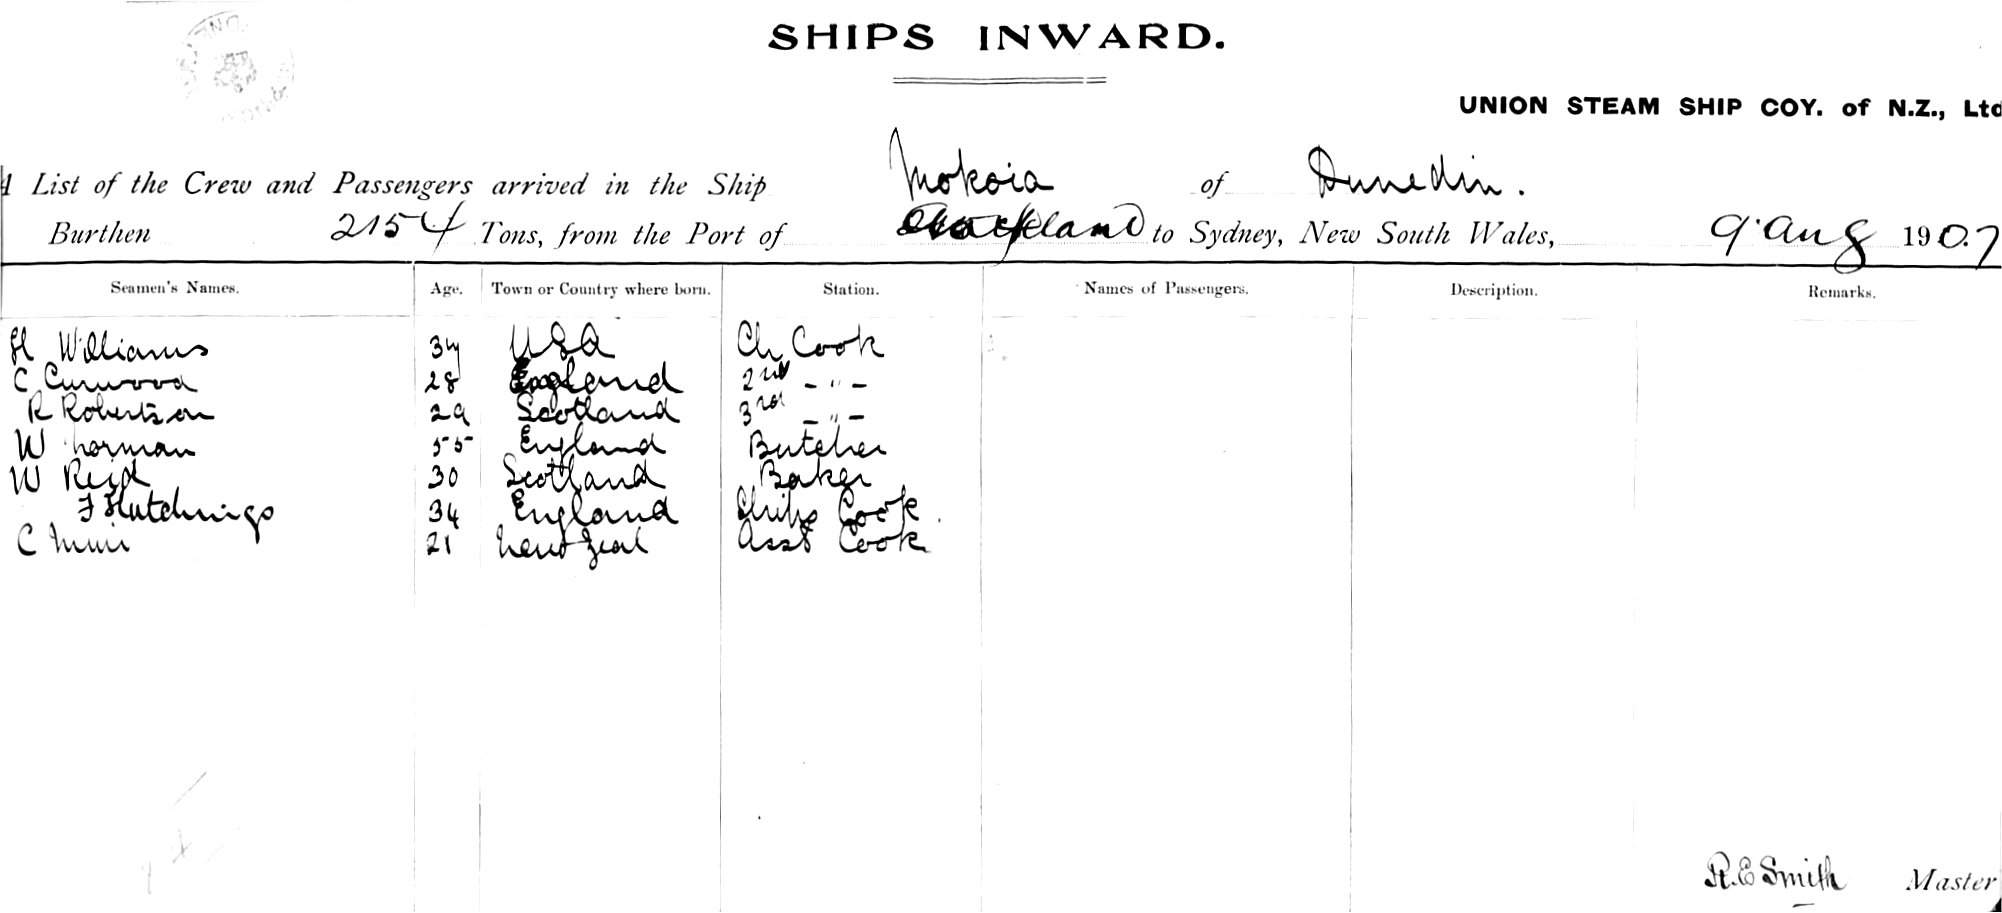 SHIPS INWARD.
UNION STEAM SHIP COY. of N.Z., Ltd
A List of the Crew and Passengers arrived in the Ship Mokoia of Dunedin.
Burthen 2154 Tons, from the Port of Auckland to Sydney, New South Wales, 9 Aug 1907
Seamen's Names. Age. Town or Country where born. Station. Names of Passengers. Description. Remarks.
H Williams 34 USA Ch Cook
C Curwood 28 England 2nd - " -
R Robertson 29 Scotland 3rd - " -
W Norman 55 England Butcher
W Reid 30 Scotland Baker
F Hutchings 34 England Ships Cook
C Muir 21 New Zeal Asst Cook
R.E Smith Master